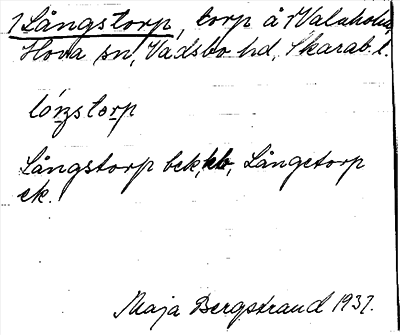 1 Långstorp, torp å 1 Valaholm,
Hova sn, Vadsbo hd, Skarab. l.
lóŋstorp
Långstorp bek, kb, Långetorp
ek.
Maja Bergstrand 1937.